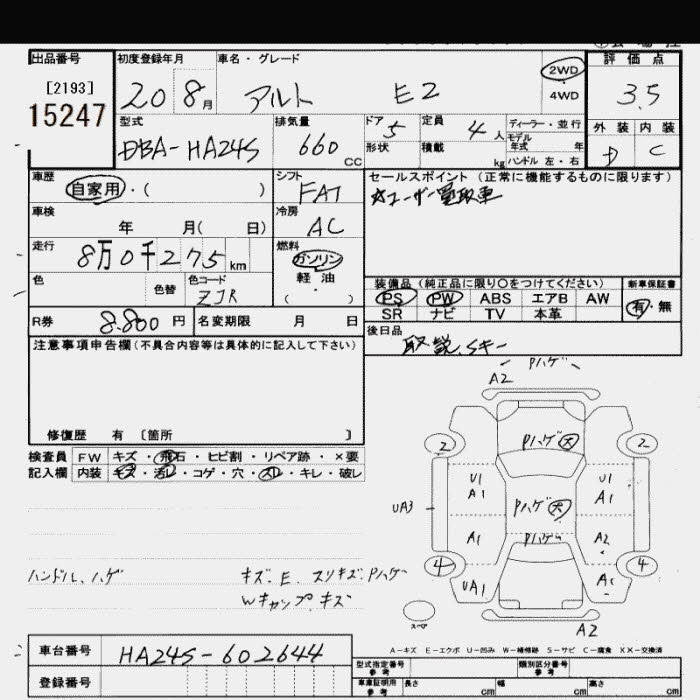 出品番号 初度登録年月 車名・グレード 評価点
[2193] 20 8月 アルト E2 2WD 3.5
15247 ・4WD
型式 排気量 ドア 定員 ディーラー・並行 外装 内装
DBA-HA24S 660 CC 5 4人 モデル年式 年 D C
形状 積載 kg ハンドル 左・右
車歴 シフト セールスポイント (正常に機能するものに限ります)
自家用・( ) FAT ☆ユーザー買取車
車検 冷房
年 月( 日) AC
走行 燃料
8万0千275km ガソリン
色 色替 色コード 軽・油 装備品(純正品に限り○をつけてください) 新車保証書
ZJR ・( ) PS PW ABS エアB AW 有・無
SR ナビ TV 本革
R券 8.800円 名変期限 月 日 後日品
取説、Sキー
注意事項申告欄(不具合内容等は具体的に記入して下さい)
修復歴 有 〔箇所 〕
検査員 FW キズ・飛石・ヒビ割・リペア跡・×要
記入欄 内装 モス・汚レ・コゲ・穴・スレ・キレ・破レ
Pハゲ
A2
2 Pハゲ大 2
U1 U1
A1 A1
UA3 Pハゲ大
A1 Pハゲ A2
4 4
UA1
A2
スペア
ハンドル、ハゲ キズ、E、スリキズ、Pハゲ
Wキャップ、キズ
A-キズ E-エクボ U-凹み W-補修跡 S-サビ C-腐食 XX-交換済
車台番号 HA24S-602644
登録番号
型式指定番号 参考 類別区分番号 参考
車庫証明用 参考 長さ cm 幅 cm 高さ cm